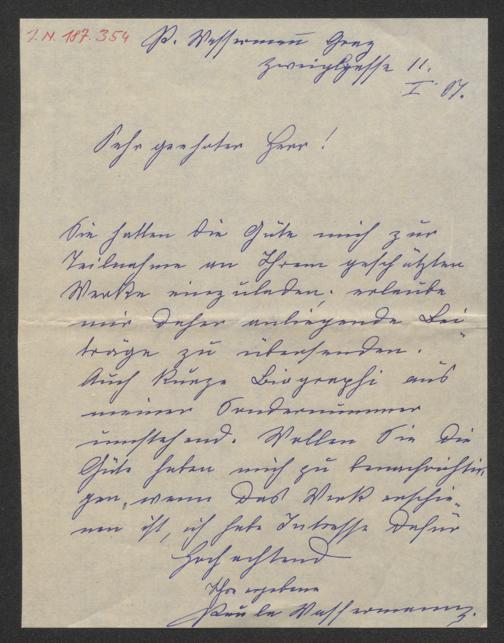 I.N. 187.354
P. Wassermann Graz
Zweiglgasse 11.
I 07.
Sehr geehrter Herr!
Sie hatten die Güte mich zur
Teilnahme an Ihrem geschätzten
Werke einzuladen; erlaube
mir daher anliegende Bei-
träge zu übersenden.
Auch kurze Biographi aus
meiner Sondernummer
umstehend. Wollen Sie die
Güte haben mich zu benachrichti-
gen, wenn das Werk erschie-
nen ist, ich habe Intresse dafür
Hochachtend
Ihre ergebene
Paula Wassermann.